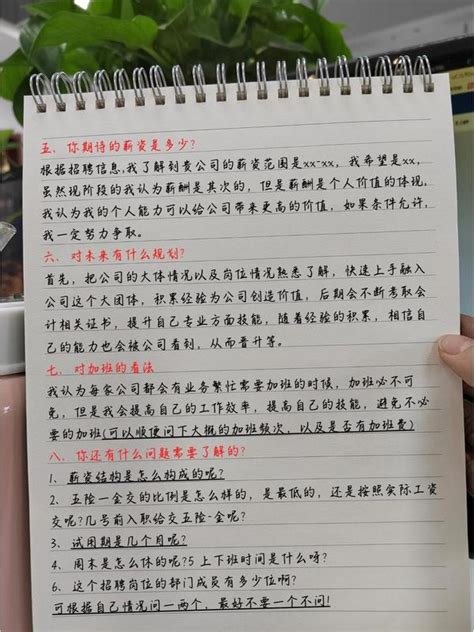 五、你期待的薪资是多少?
根据招聘信息,我了解到贵公司的薪资范围是xx-xx,我希望是xx,
虽然现阶段的我认为薪酬是其次的,但是薪酬是个人价值的体现,
我认为我的个人能力可以给公司带来更高的价值,如果条件允许,
我一定努力争取。
六、对未来有什么规划?
首先,把公司的大体情况以及岗位情况熟悉了解,快速上手融入
公司这个大团体,积累经验为公司创造价值,后期会不断考取会
计相关证书,提升自己专业方面技能,随着经验的积累,相信自
己的能力也会被公司看到,从而晋升等。
七、对加班的看法
我认为每家公司都会有业务繁忙需要加班的时候,加班必不可
免,但是我会提高自己的工作效率,提高自己的技能,避免不必
要的加班(可以顺便问下大概的加班频次,以及是否有加班费)
八、你还有什么问题需要了解的?
1、薪资结构是怎么构成的呢?
2、五险一金交的比例是怎么样的,是最低的,还是按照实际工资
交呢?几号前入职给交五险-金呢?
3、试用期是几个月呢?
4、周末是怎么休的呢?5上下班时间是什么呀?
6、这个招聘岗位的部门成员有多少位啊?
可根据自己情况问一两个,最好不要一个不问!